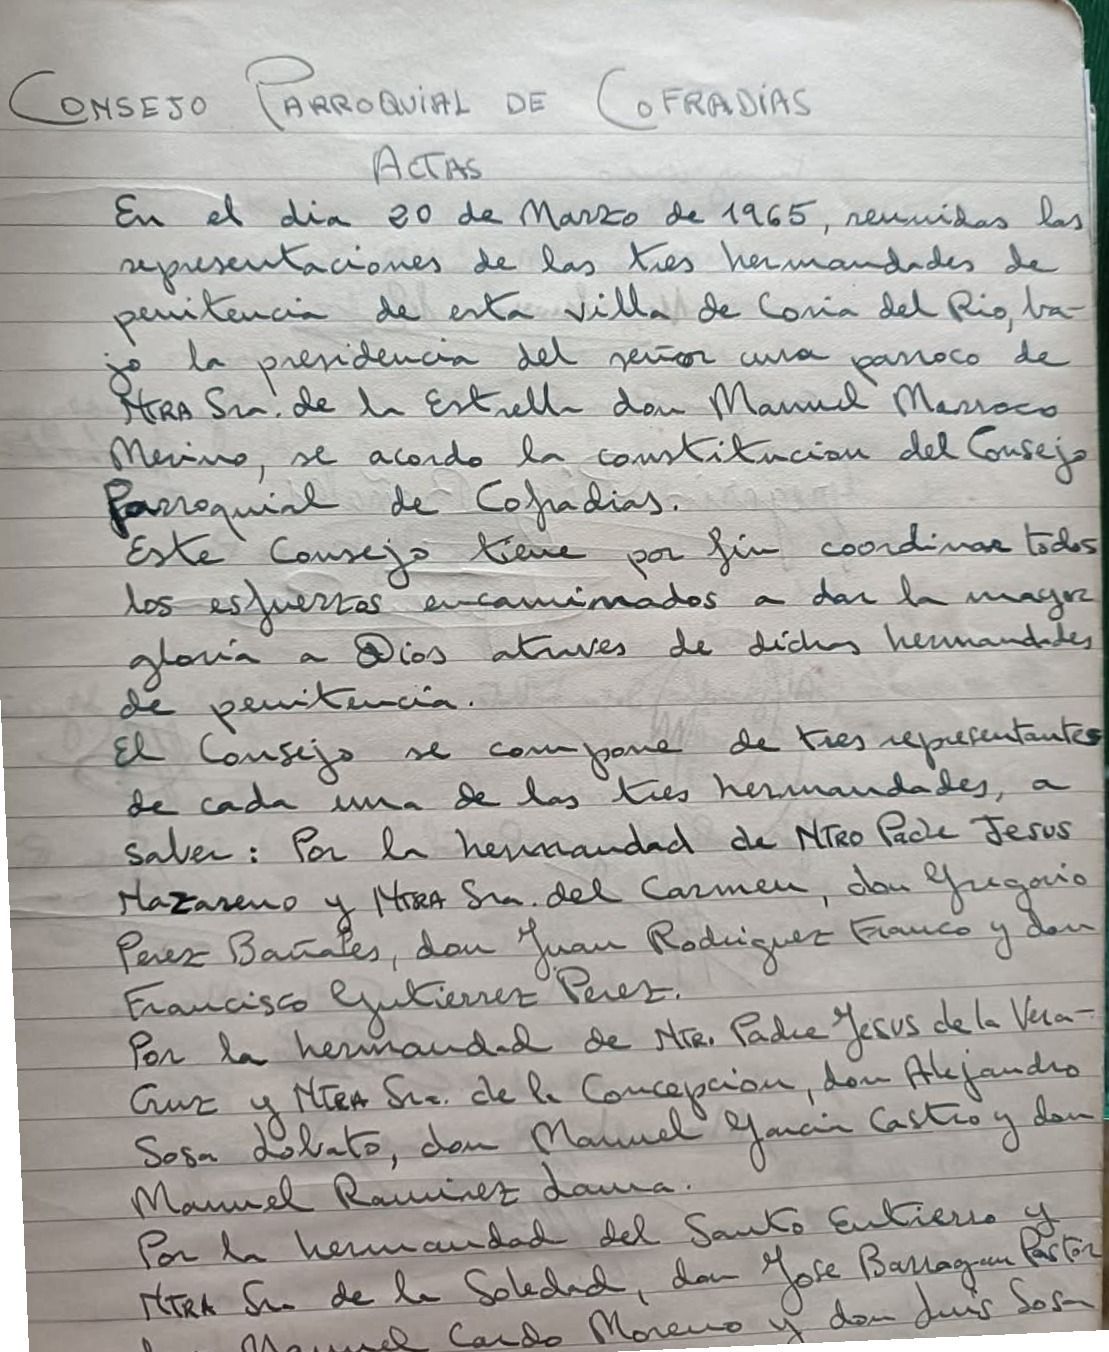 CONSEJO PARROQUIAL DE COFRADÍAS
ACTAS
En el dia 20 de Marzo de 1965, reunidas las
representaciones de las tres hermandades de
penitencia de esta villa de Coria del Rio, ba-
jo la presidencia del señor cura parroco de
NTRA Sra. de la Estrella don Manuel Marroco
Merino, se acordo la constitucion del Consejo
Parroquial de Cofradias.
Este Consejo tiene por fin coordinar todos
los esfuerzos encaminados a dar la mayor
gloria a Dios atraves de dichas hermandades
de penitencia.
El Consejo se compone de tres representantes
de cada una de las tres hermandades, a
saber: Por la hermandad de NTRO Padre Jesus
Nazareno y NTRA Sra. del Carmen, don Gregorio
Perez Bañales, don Juan Rodriguez Franco y don
Francisco Gutierrez Perez.
Por la hermandad de Ntr. Padre Jesus de la Vera-
Cruz y NTRA Sra. de la Concepcion, don Alejandro
Sosa Lobato, don Manuel Garcia Castro y don
Manuel Ramirez Lama.
Por la hermandad del Santo Entierro y
NTRA Sra de la Soledad, don Jose Barragan Pastor
Manuel Cardo Moreno y don Luis Sosa